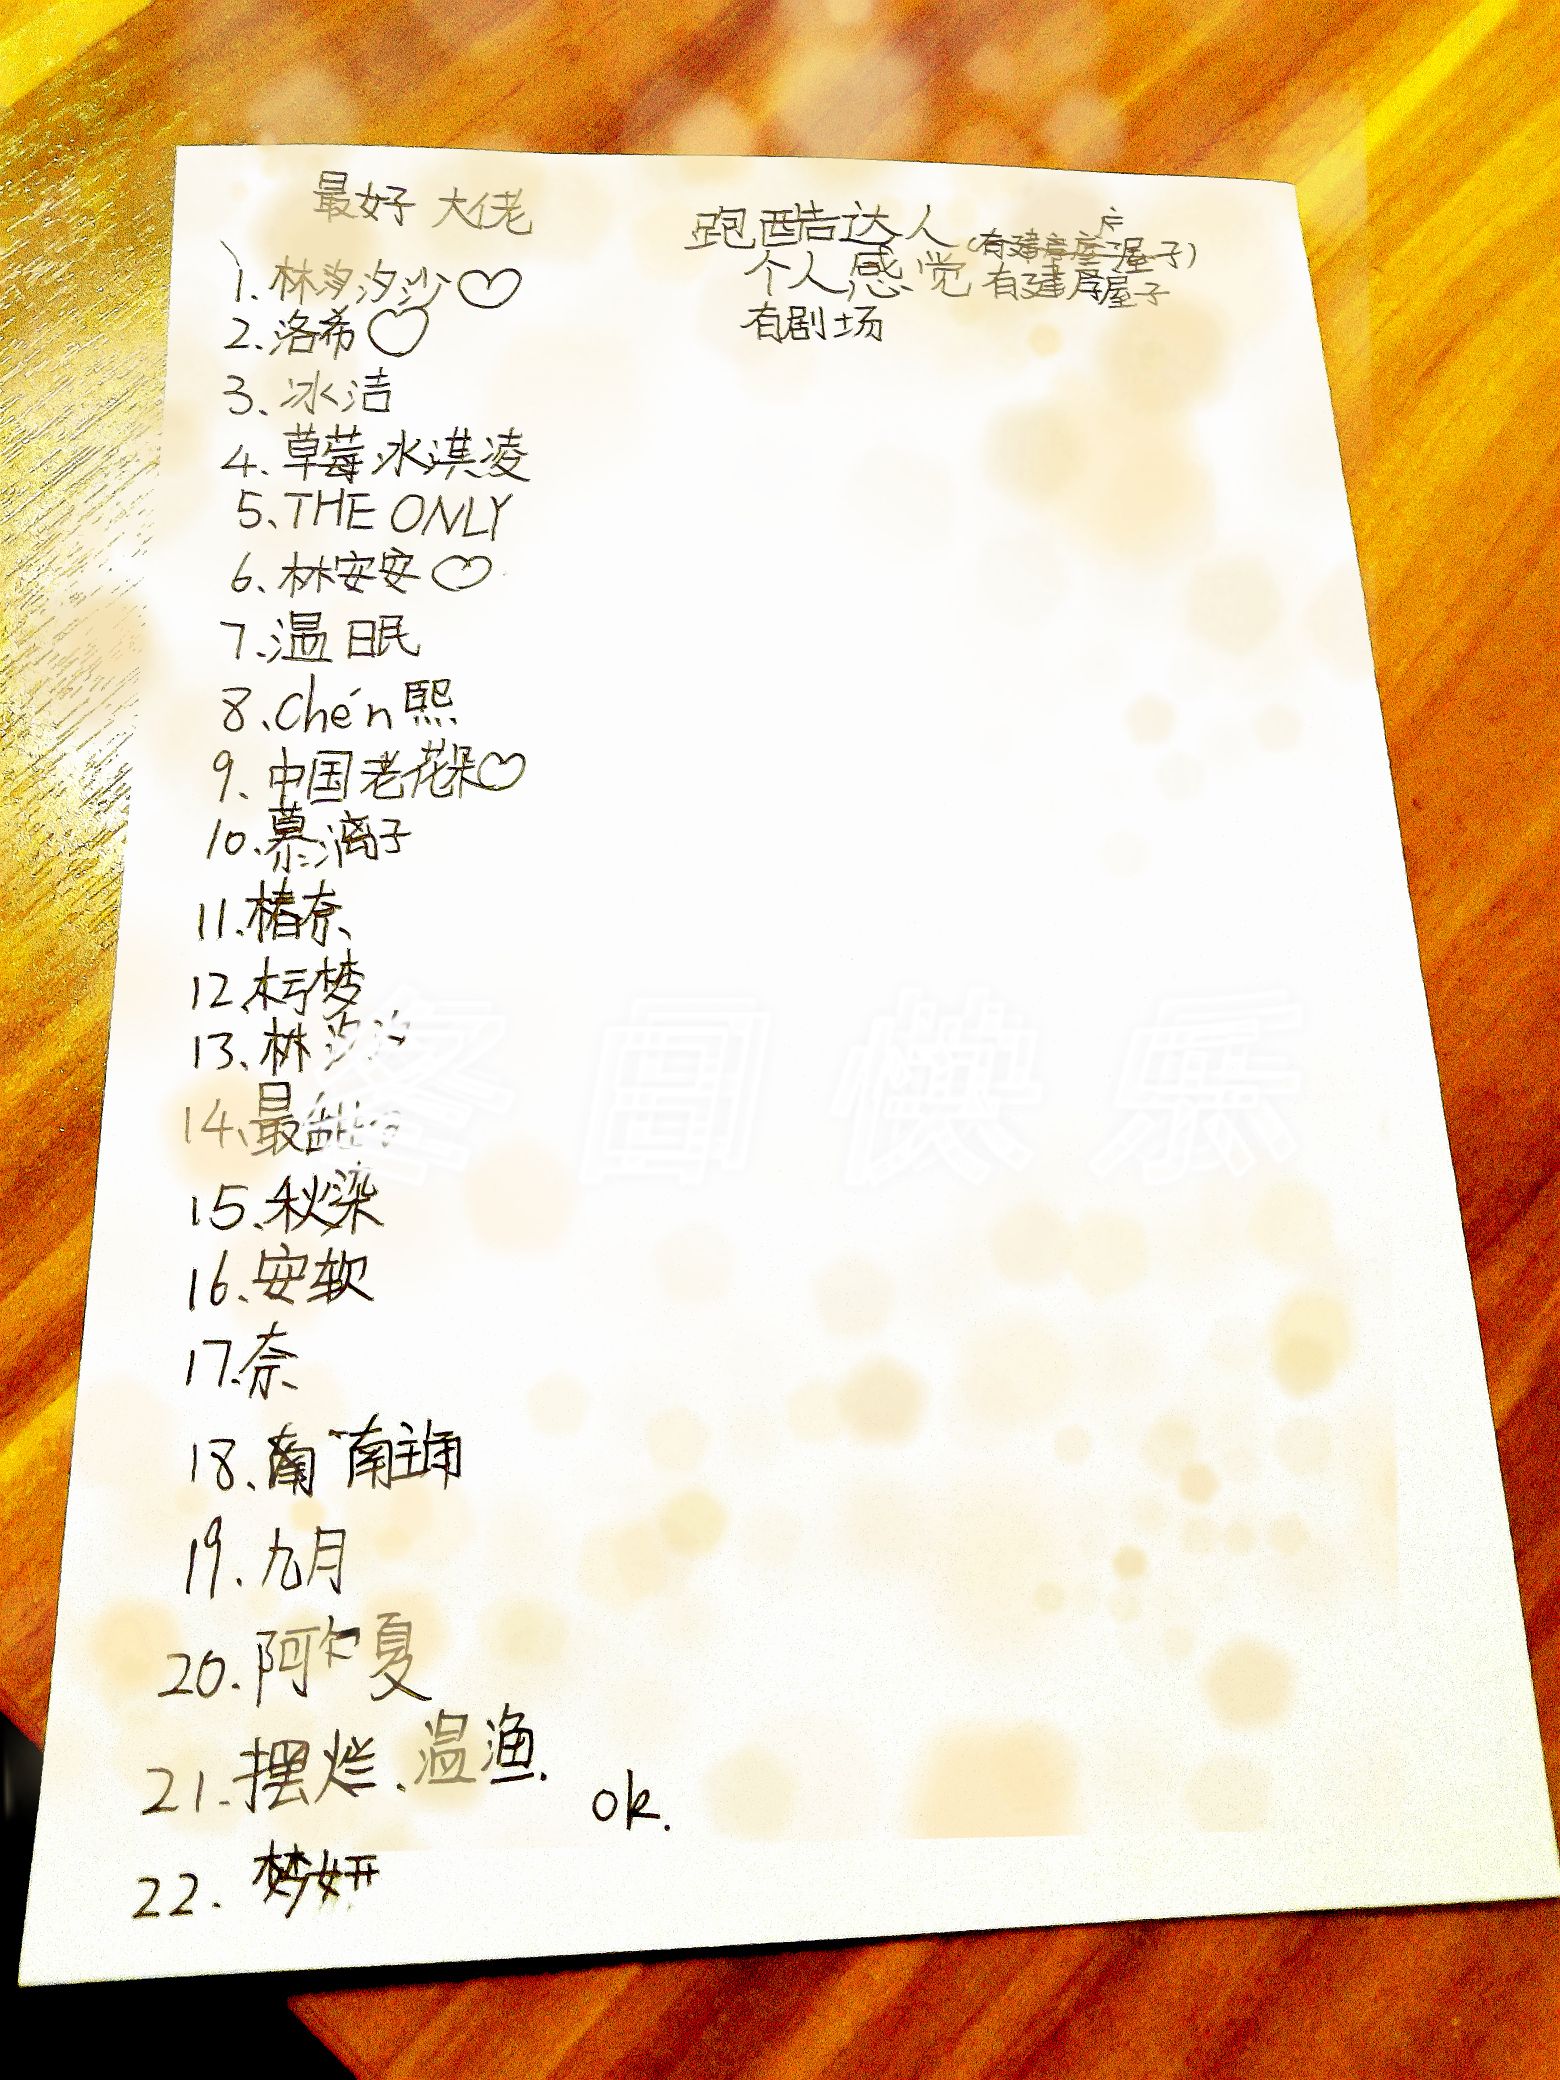 最好 大佬
1、林汐汐沙♡
2、洛希♡
3、冰洁
4、草莓冰淇凌
5、THE ONLY
6、林安安♡
7、温眠
8、chén熙
9、中国老花朵♡
10、慕漓子
11、椿奈
12、梦
13、林汐
14、最甜
15、秋染
16、安软
17、奈
18、南
19、九月
20、阿夏
21、摆烂、温渔.
ok.
22、梦妍
跑酷达人
(有建 屋子)
个人感觉有建 屋子
有剧场
冬日快乐